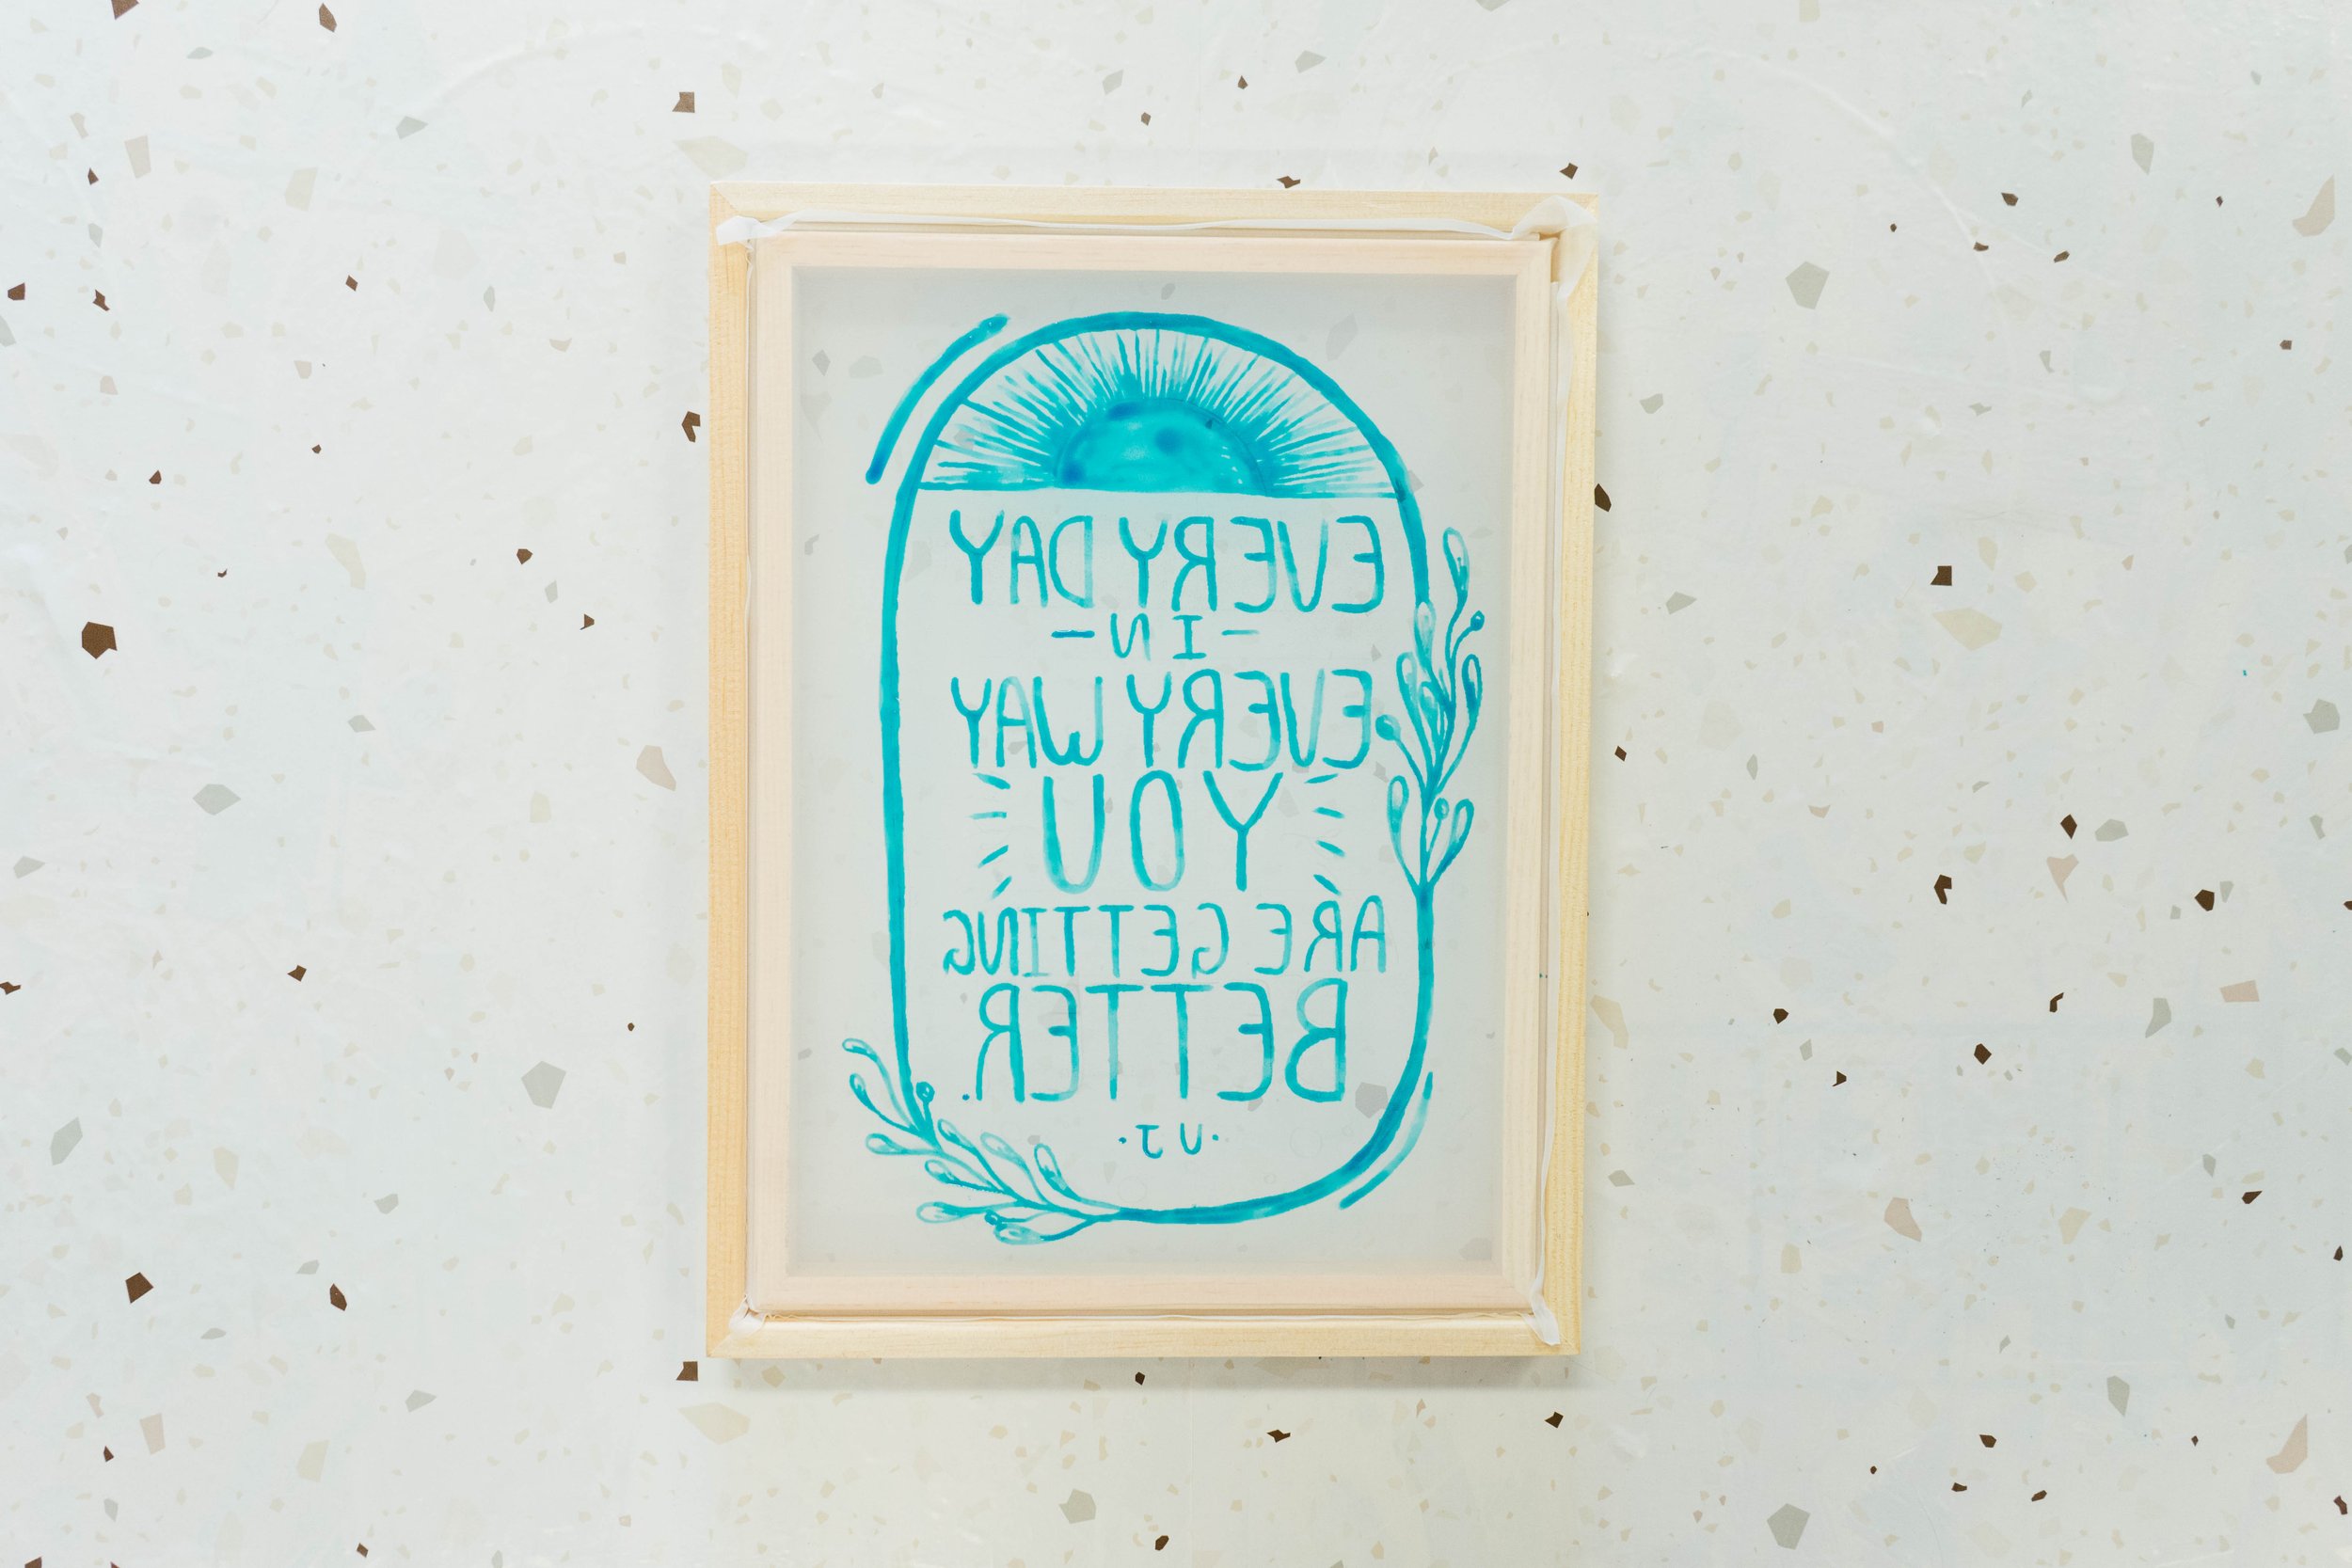 EVERY DAY
- IN -
EVERY WAY
YOU
ARE GETTING
BETTER.
·UJ·